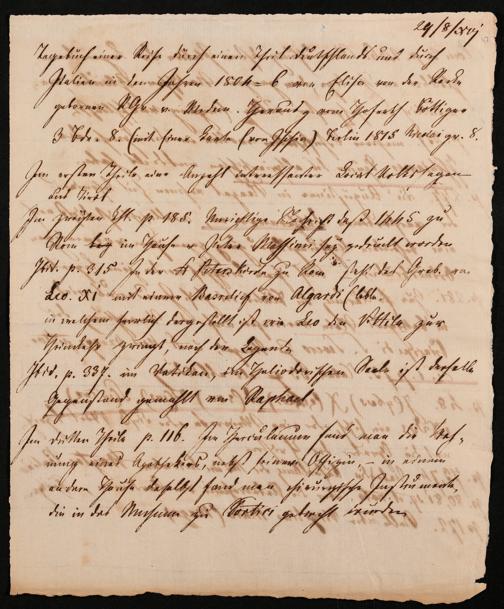 29/8/xvj
Tagebuch einer Reise durch einen Theil Deutschlands und durch
Italien in den Jahren 1804–6 von Elisa von der Recke
gebornen RGfn v. Medem. Herausg. vom Hofrath Böttiger
3 Bde. 8. (mit einer Karte) Berlin 1815 Nicolai gr. 8.
Im ersten Theile eine Anzahl interessanter
aus
Im zweiten Th. p. 188. daß 1445 zu
Rom im Hause v. Peter Massimi sey gedruckt worden
Ibid. p. 315 In der St Peterskirche zu Rom das Grab von
Leo. XI mit einem Basrelief von Algardi
in welchem herrlich dargestellt ist wie Leo den Attila zur
Umkehr zwingt, nach der Legende
Ibid. p. 337. im Vatikan, im Heliodorischen Saale ist derselbe
Gegenstand gemahlt von Raphael
Im dritten Theile p. 116. In Herculanum fand man die Woh-
nung eines Apothekers, nebst seiner Officin, – in einem
andern Hause daselbst fand man chirurgische Instrumente,
die in das Museum zu Portici gebracht wurden